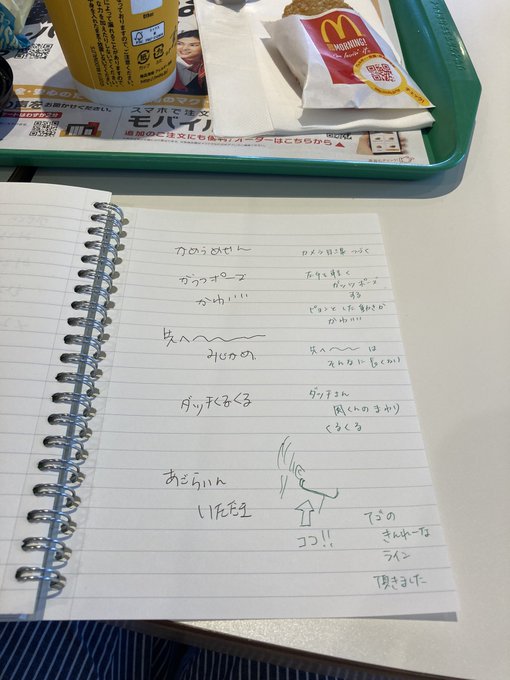 M
MORNING!
i'm lovin' it
声をお聞かせください。
スマホで注文
モバイル
追加のご注文にも便利!オーダーはこちらから▲
かめらめせん
カメラ目線
がっつポーズ
かわいい
ガッツポーズ
する
ピョンとした動きが
かわいい
先へ〜〜〜
みじかめ
先へ〜〜〜は
そんなに長くない
ダッチくるくる
ダッチさん
岡くんのまわり
くるくる
あごらいん
いただき
ココ!!
アゴの
きんれーな
ライン
頂きました